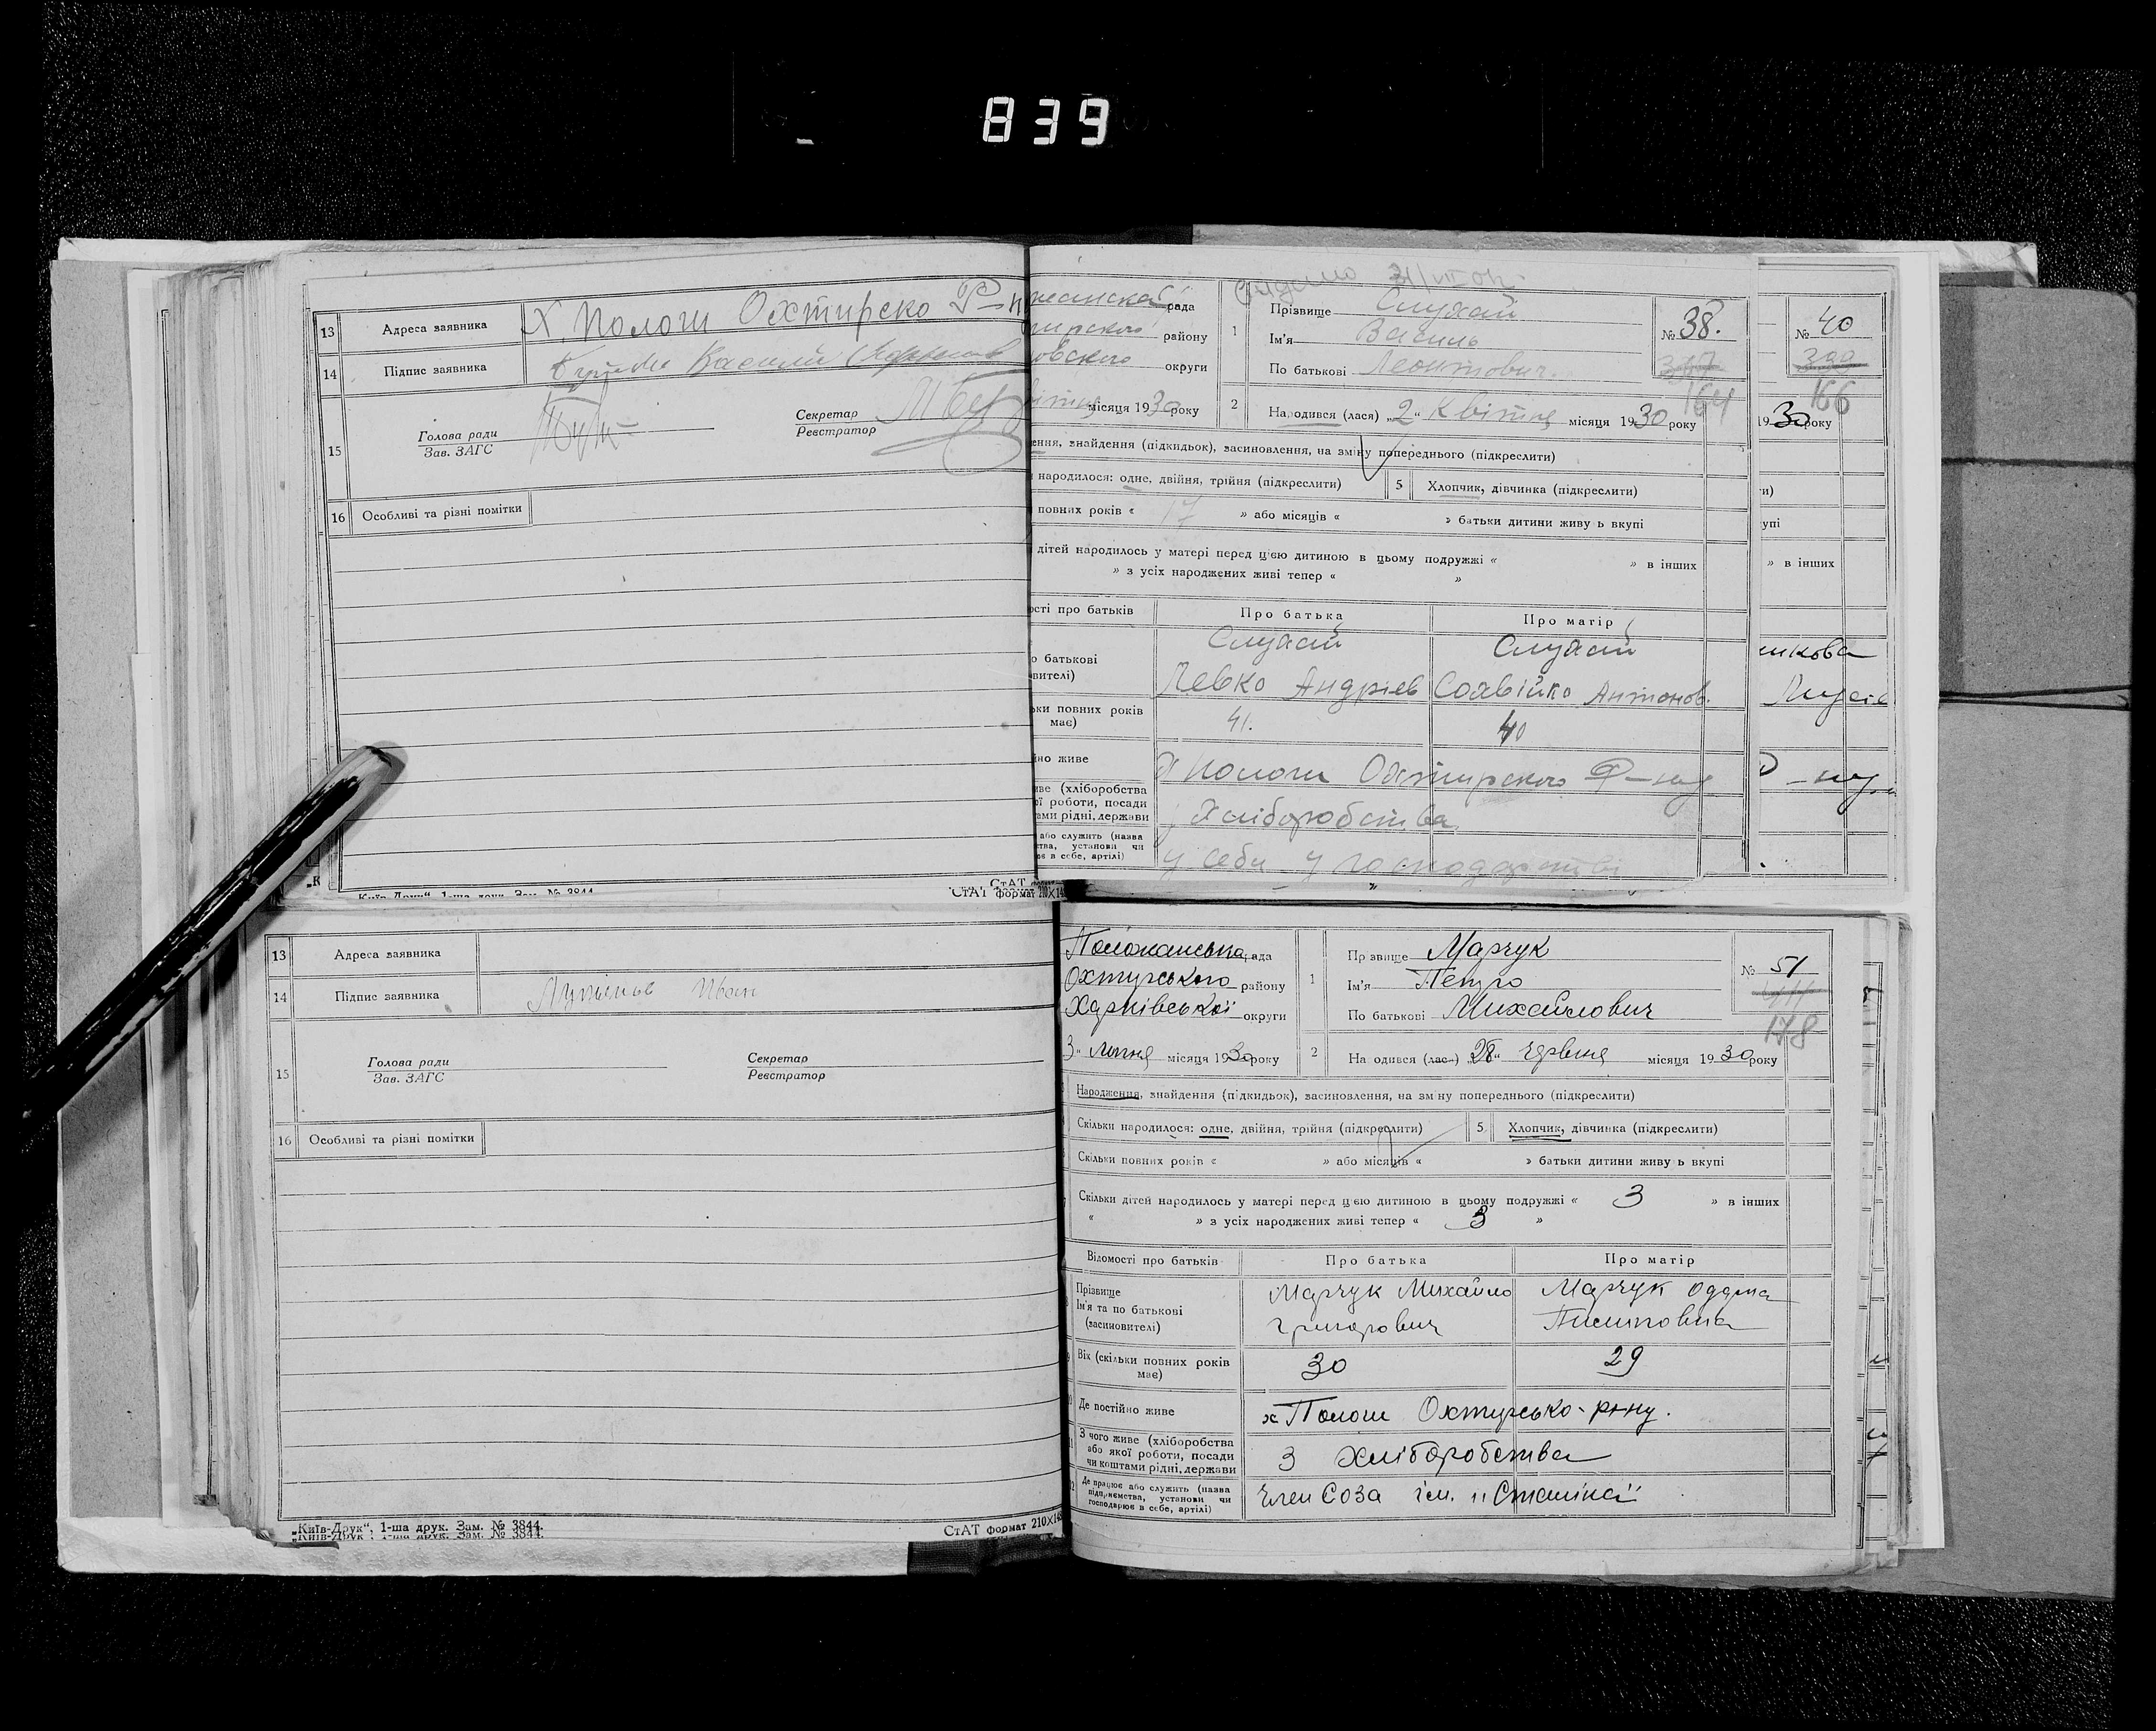 839
13 Адреса заявника Х. Пологи Охтирско Р-н
14 Підпис заявника
15 Голова ради
Зав. ЗАГС
Секретар
Реєстратор
16 Особливі та різні помітки
рада
району
округи
місяця 1930 року
1 Прізвище Слухай
Ім'я Василь
По батькові Леонтович
№ 38.
164
2 Народився (лася) „2" Квітня місяця 1930 року
ення, знайдення (підкидьок), засиновлення, на зміну попереднього (підкреслити)
народилося: одне, двійня, трійня (підкреслити) 5 Хлопчик, дівчинка (підкреслити)
повних років « 17 » або місяців « » батьки дитини живу ь вкупі
дітей народилось у матері перед цією дитиною в цьому подружжі « » в інших
» з усіх народжених живі тепер « »
ості про батьків Про батька Про матір
Слухай Слухай
о батькові
вителі)
Левко Андріев Антонов.
ьки повних років
має)
41. 40
но живе х Пологи Охтирского Р-ну
иве (хліборобства
ої роботи, посади
тами рідні, держави
Хліборобства
або служить (назва
ства, установи чи
ює в себе, артілі)
у себе у господарстві
№ 40
166
1930 року
ти)
упі
» в інших
„Київ-Друк", 1-ша друк. Зам. № 3844.
СтАТ формат 210X14
13 Адреса заявника
14 Підпис заявника Иван
15 Голова ради
Зав. ЗАГС
Секретар
Реєстратор
16 Особливі та різні помітки
„Київ-Друк", 1-ша друк. Зам. № 3844.
СтАТ формат 210X148
Положанська рада
Охтирського району
Харківської округи
3" липня місяця 1930 року
1 Пр звище Марчук
Ім'я Петро
По батькові Михайлович
№ 51
178
2 На одився (лас-) „28" червня місяця 1930 року
Народження, знайдення (підкидьок), засиновлення, на зміну попереднього (підкреслити)
Скільки народилося: одне, двійня, трійня (підкреслити) 5 Хлопчик, дівчинка (підкреслити)
Скільки повних років « » або місяців « » батьки дитини живу ь вкупі
Скільки дітей народилось у матері перед цією дитиною в цьому подружжі « 3 » в інших
« » з усіх народжених живі тепер « 3 »
Відомості про батьків Про батька Про матір
Прізвище
Ім'я та по батькові
(засиновителі)
Марчук Михайло
Григорович
Марчук
Пилиповна
Вік (скільки повних років
має)
30 29
Де постійно живе х Пологи Охтирсько-р-ну.
З чого живе (хліборобства
або якої роботи, посади
чи коштами рідні, держави
З хліборобства
Де працює або служить (назва
підприємства, установи чи
господарює в себе, артілі)
Член Соза ім. „Сталіна"